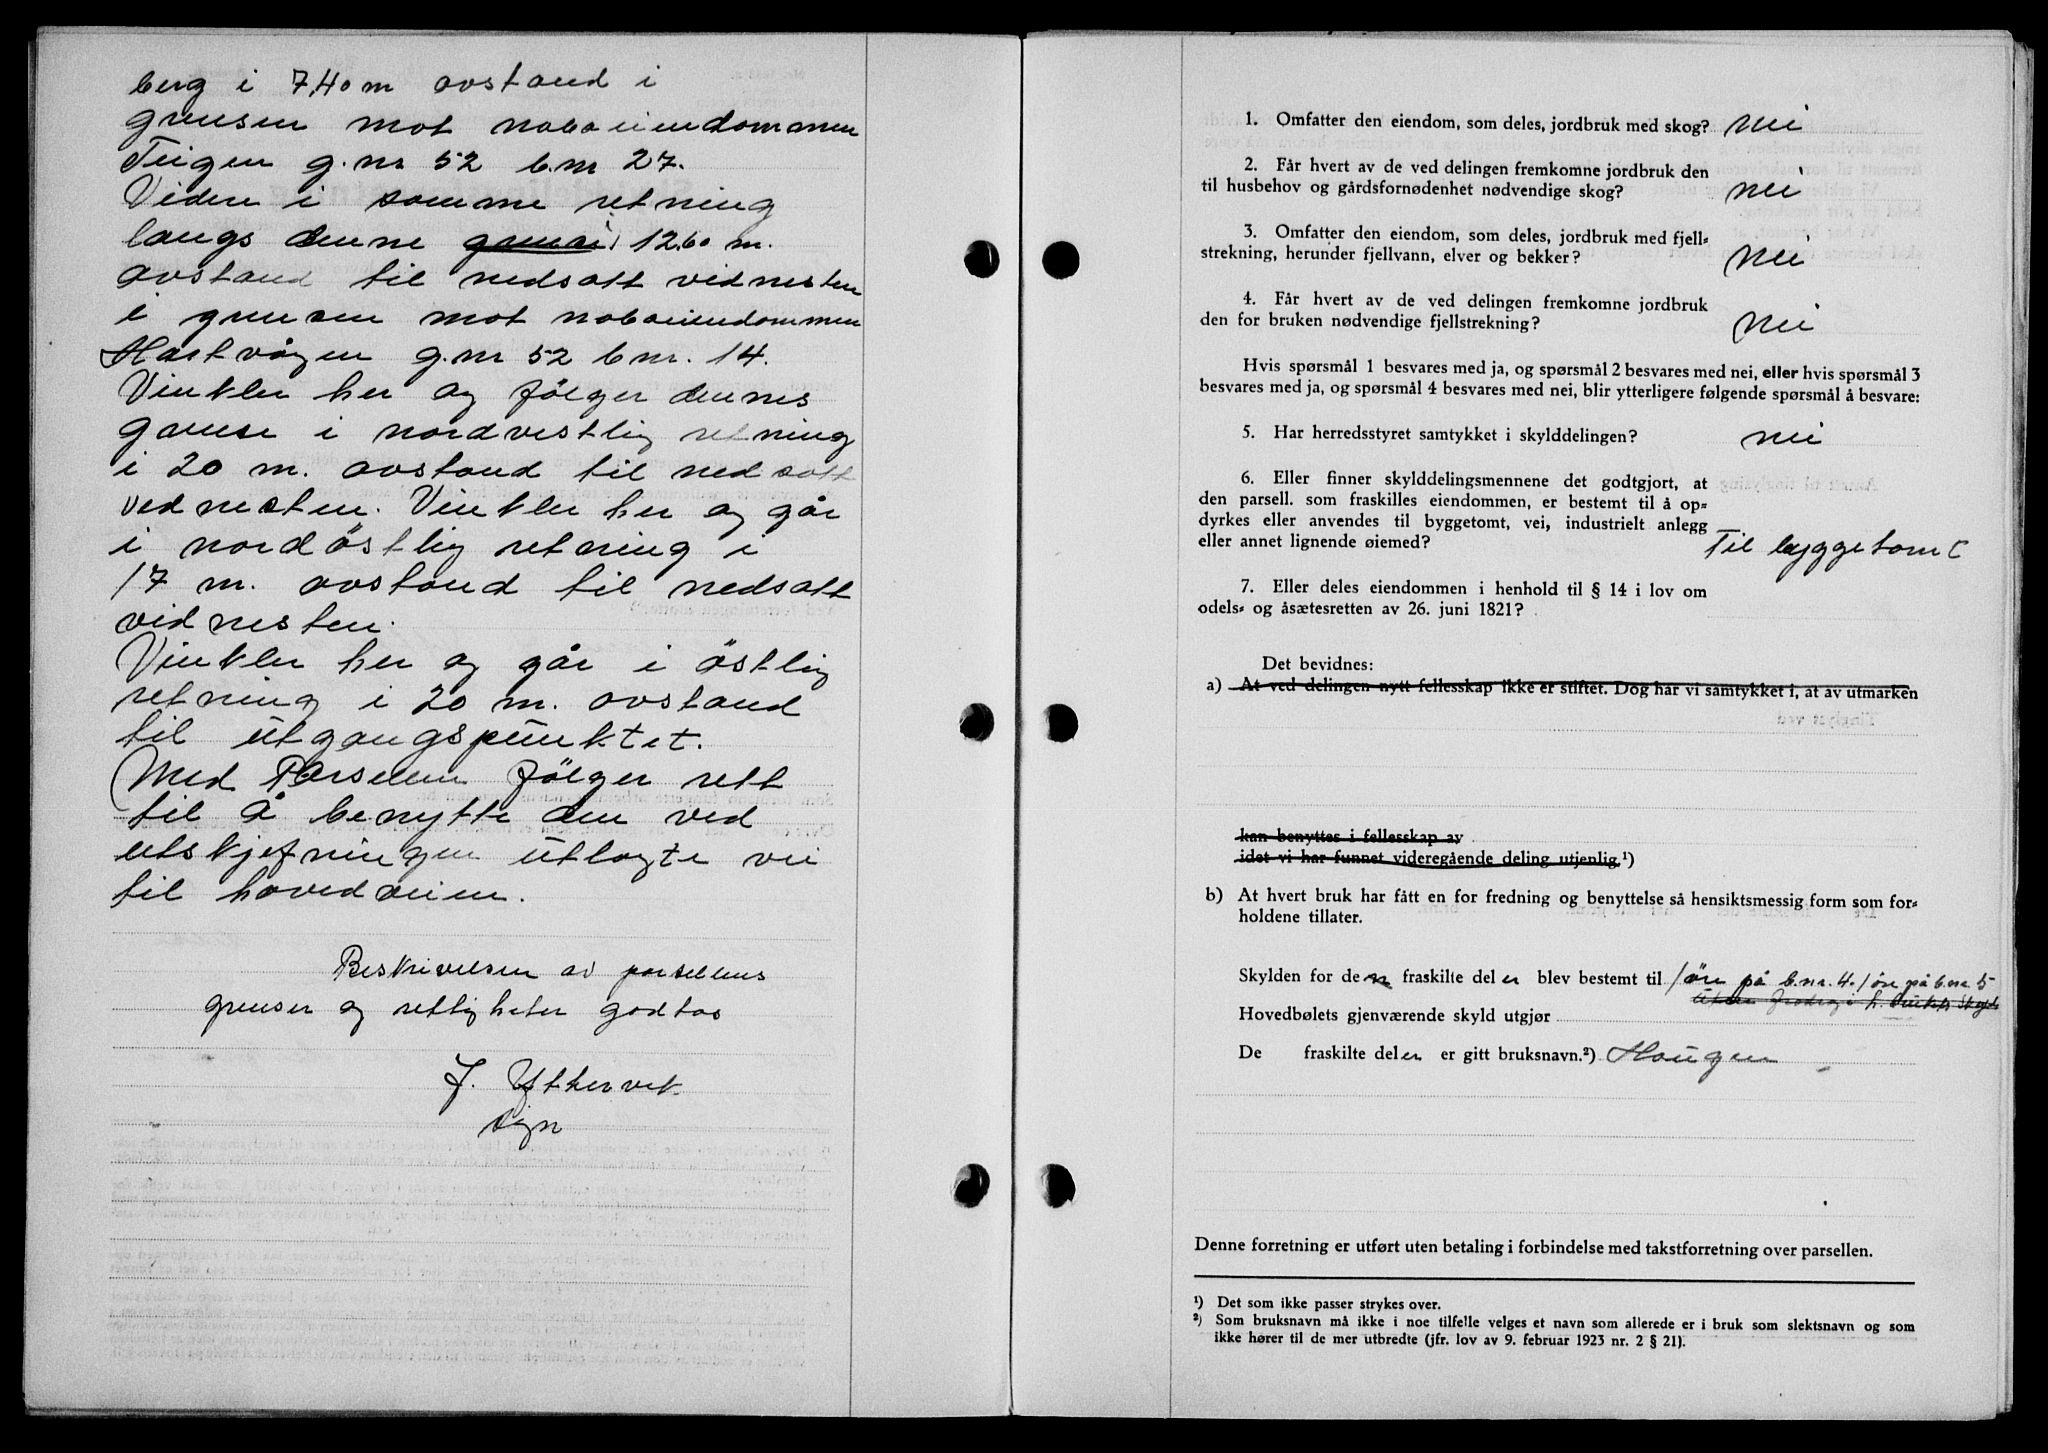 berg i 7,40 m avstand i
grensen mot naboeiendommen
Teigen g.nr 52 b.nr 27.
Videre i samme retning
langs denne grense i 12,60 m.
avstand til nedsatt vidnesten
i grensen mot naboeiendommen
Hastvågen g.nr 52 b nr. 14.
Vinkler her og følger dennes
grense i nordvestlig retning
i 20 m. avstand til nedsatt
vednesten. Vinkler her og går
i nordöstlig retning i
17 m. avstand til nedsatt
vidnesten.
Vinkler her og går i östlig
retning i 20 m. avstand
til utgangspunktet.
Med Parsellen følger rett
til å benytte den ved
utskjefningen utlagte vei
til hovedveien.
Beskrivelsen av parsellens
grenser og rettigheter godtas
J. Yttervik
sign
1. Omfatter den eiendom, som deles, jordbruk med skog? nei
2. Får hvert av de ved delingen fremkomne jordbruk den
til husbehov og gårdsfornødenhet nødvendige skog? nei
3. Omfatter den eiendom, som deles, jordbruk med fjell=
strekning, herunder fjellvann, elver og bekker? nei
4. Får hvert av de ved delingen fremkomne jordbruk
den for bruken nødvendige fjellstrekning? nei
Hvis spørsmål 1 besvares med ja, og spørsmål 2 besvares med nei, eller hvis spørsmål 3
besvares med ja, og spørsmål 4 besvares med nei, blir ytterligere følgende spørsmål å besvare:
5. Har herredsstyret samtykket i skylddelingen? nei
6. Eller finner skylddelingsmennene det godtgjort, at
den parsell. som fraskilles eiendommen, er bestemt til å op=
dyrkes eller anvendes til byggetomt, vei, industrielt anlegg
eller annet lignende øiemed? Til byggetomt
7. Eller deles eiendommen i henhold til § 14 i lov om
odels= og åsætesretten av 26. juni 1821?
Det bevidnes:
a) At ved delingen nytt fellesskap ikke er stiftet. Dog har vi samtykket i, at av utmarken
kan benyttes i fellesskap av
idet vi har funnet videregående deling utjenlig.¹)
b) At hvert bruk har fått en for fredning og benyttelse så hensiktsmessig form som for=
holdene tillater.
Skylden for den fraskilte del er blev bestemt til 1 öre på b.nr. 4. 1 öre på b.nr 5
Hovedbølets gjenværende skyld utgjør
De fraskilte deler er gitt bruksnavn.²) Haugen
Denne forretning er utført uten betaling i forbindelse med takstforretning over parsellen.
¹) Det som ikke passer strykes over.
²) Som bruksnavn må ikke i noe tilfelle velges et navn som allerede er i bruk som slektsnavn og som
ikke hører til de mer utbredte (jfr. lov av 9. februar 1923 nr. 2 § 21).